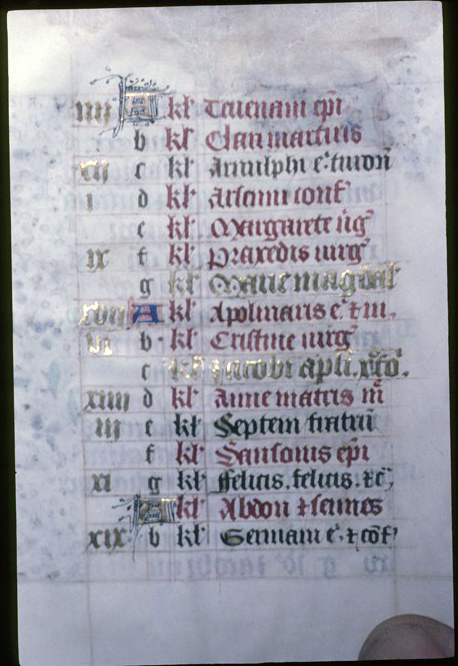 iiii A kł Tenenani epi
b kł Clari martiris
xii c kł Arnulphi e. turon
i d kł Arsenii conf
e kł Margarete uirg
ix f kł Praxedis uirg
g kł Marie magdal
xvii A kł Apolinaris e. 
vi b kł Cristine uirg
c kł Jacobi apli. xpo.
xiiii d kł Anne matris m
iii e kł Septem fratru
f kł Sansonis epi
xi g kł Felicis. felicis. 
A kł Abdon  sennes
xix b kł Germani e.  cof